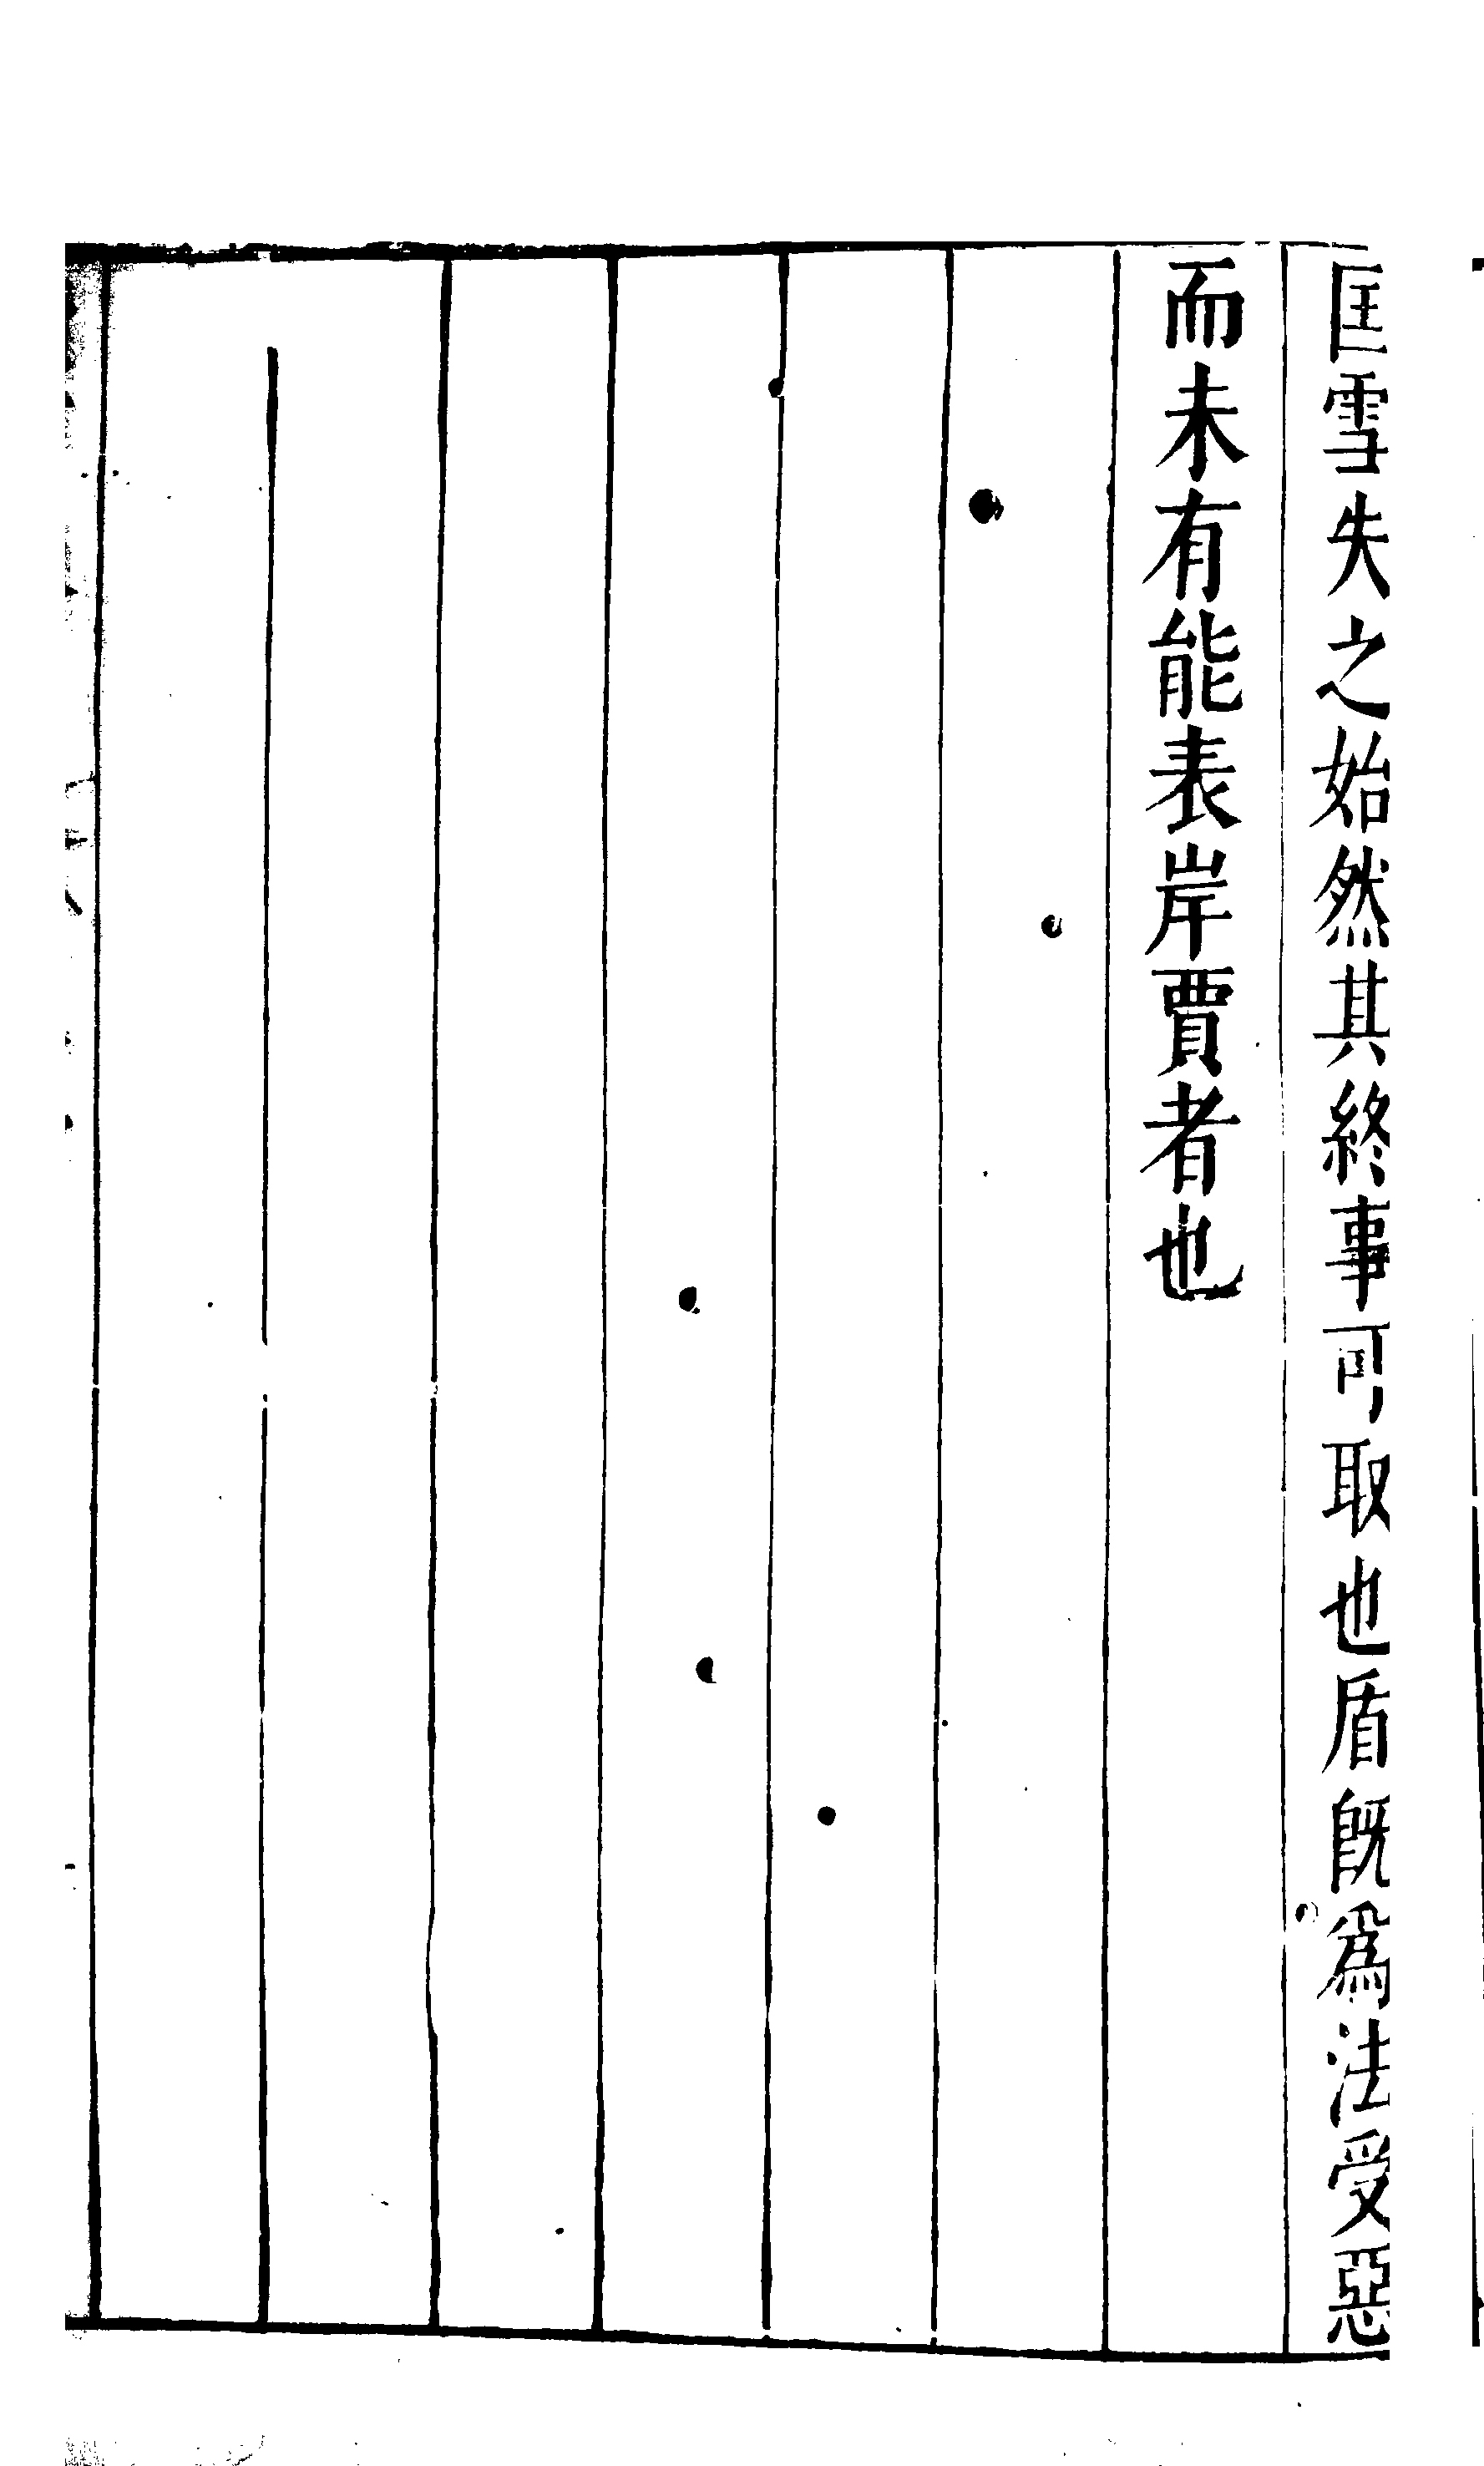 匡雪失之始然其終事可取也盾旣爲法受惡
而未有能表岸賈者也